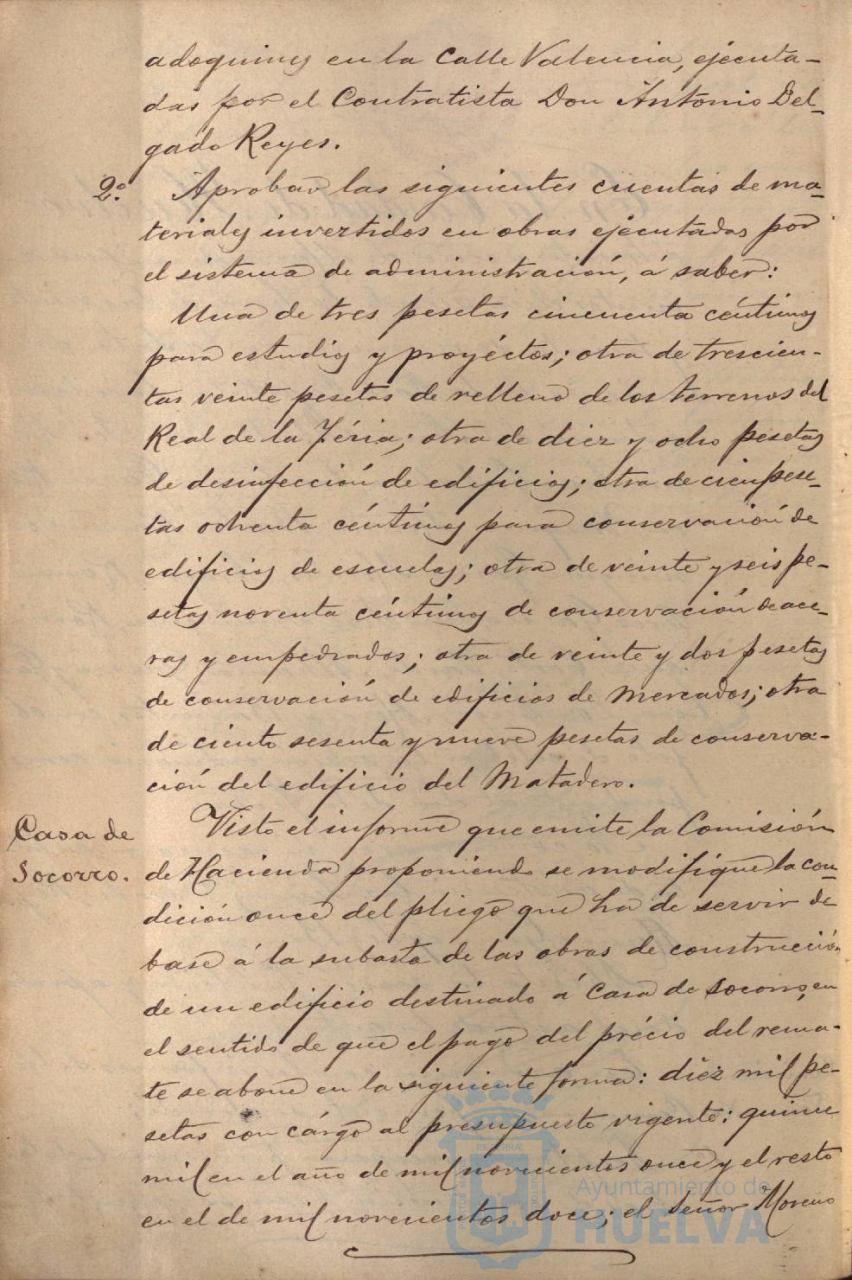 adoquines en la calle Valencia, ejecuta-
das por el Contratista Don Antonio Del-
gado Reyes.
2.º Aprobar las siguientes cuentas de ma-
teriales invertidos en obras ejecutadas por
el sistema de administración, á saber:
Una de tres pesetas cincuenta céntimos
para estudios y proyéctos; otra de trescien-
tas veinte pesetas de relleno de los terrenos del
Real de la Féria; otra de diez y ocho pesetas
de desinfección de edificios; otra de cien pese-
tas ochenta céntimos para conservación de
edificios de escuelas; otra de veinte y seis pe-
setas noventa céntimos de conservación de ace-
ras y empedrados; otra de veinte y dos pesetas
de conservación de edificios de Mercados; otra
de ciento sesenta y nueve pesetas de conserva-
ción del edificio del Matadero.
Casa de
Socorro.
Visto el informe que emite la Comisión
de Hacienda proponiendo se modifique la con-
dición once del pliego que ha de servir de
base á la subasta de las obras de construcción
de un edificio destinado á Casa de Socorro, en
el sentido de que el pago del précio del rema-
te se abone en la siguiente forma: diez mil pe-
setas con cárgo al presupuesto vigente: quince
mil en el año de mil novecientos once y el resto
en el de mil novecientos doce; el Señor Moreno
Ayuntamiento de
HUELVA